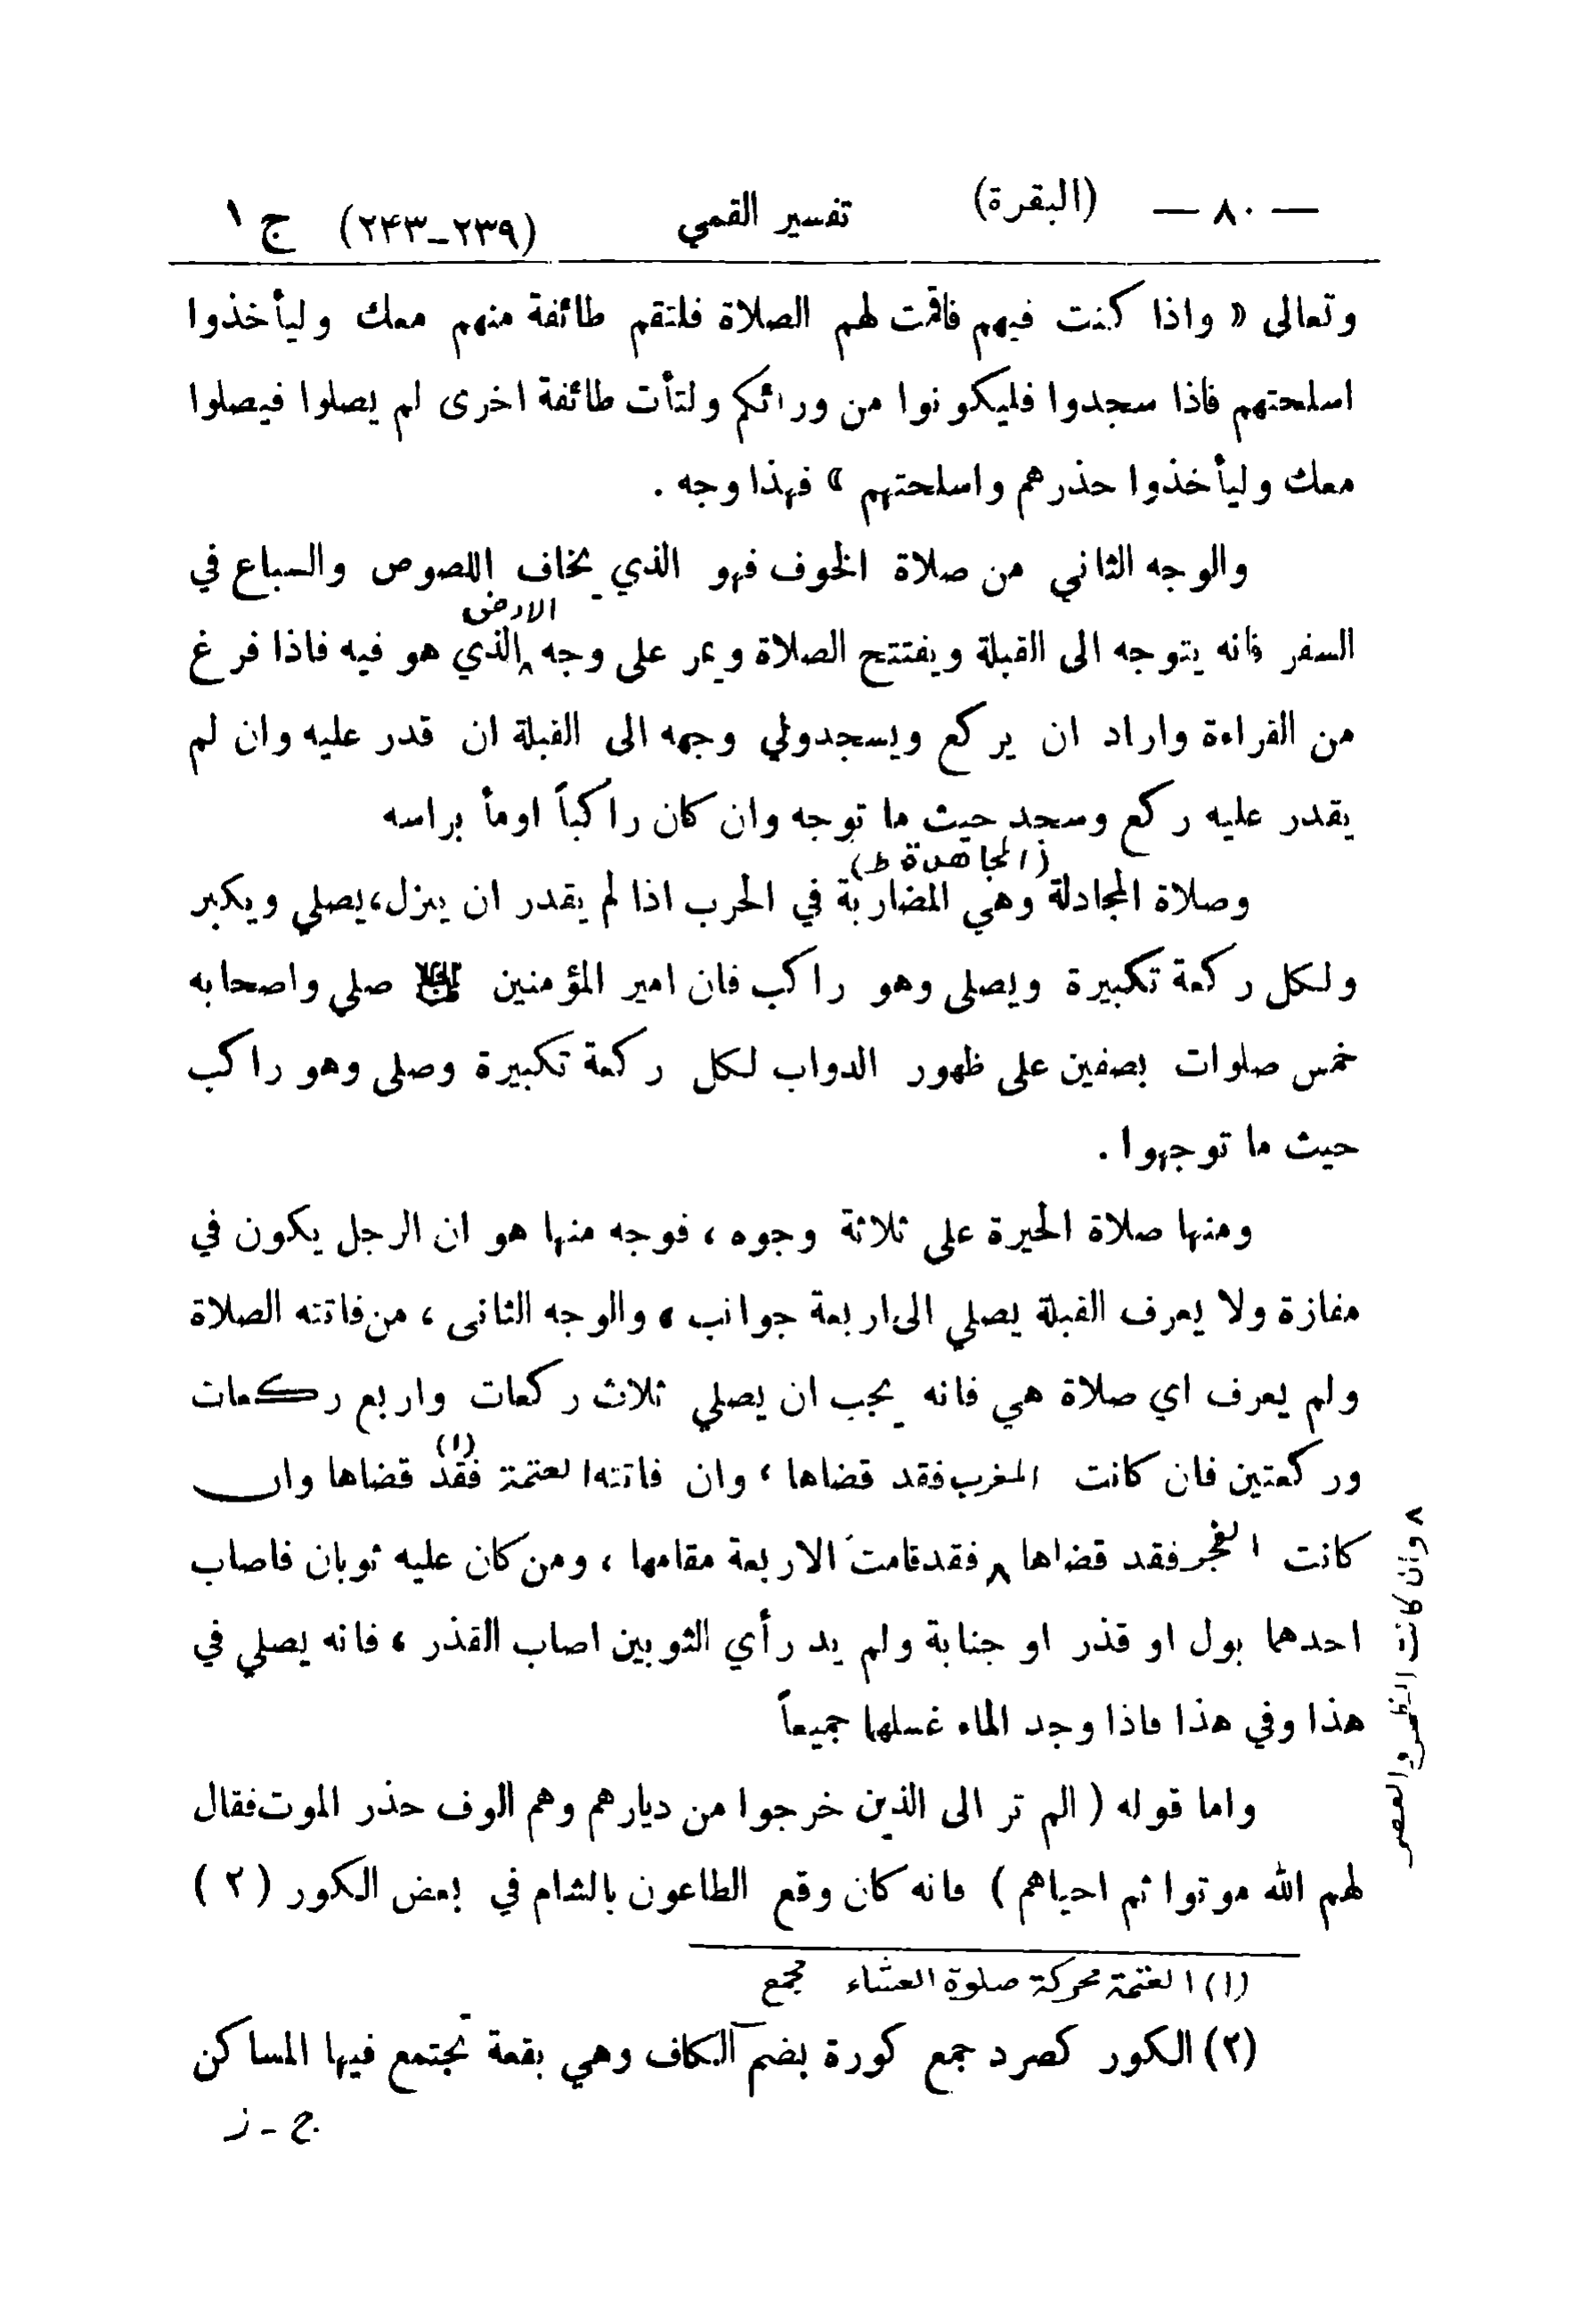 — ٨٠ — (البقرة) تفسير القمي (٢٣٩-٢۴٣) ج ١
وتعالى « واذا كنت فيهم فاقمت لهم الصلاة فلتقم طائفة منهم معك وليأخذوا
اسلحتهم فاذا سجدوا فليكونوا من ورائكم ولتأت طائفة اخرى لم يصلوا فيصلوا
معك وليأخذوا حذرهم واسلحتهم » فهذا وجه .
والوجه الثاني من صلاة الخوف فهو الذي يخاف اللصوص والسباع في
الارض
السفر فانه يتوجه الى القبلة ويفتتح الصلاة ويمر على وجه ٨ الذي هو فيه فاذا فرغ
من القراءة واراد ان يركع ويسجدولي وجهه الى القبلة ان قدر عليه وان لم
يقدر عليه ركع وسجد حيث ما توجه وان كان راكباً اومأ براسه
(المجاهدة ظ)
وصلاة المجادلة وهي المضاربة في الحرب اذا لم يقدر ان ينزل، يصلي ويكبر
ولكل ركعة تكبيرة ويصلى وهو راكب فان امير المؤمنين صلى واصحابه
خمس صلوات بصفين على ظهور الدواب لكل ركعة تكبيرة وصلى وهو راكب
حيث ما توجهوا .
ومنها صلاة الحيرة على ثلاثة وجوه ، فوجه منها هو ان الرجل يكون في
مفازة ولا يعرف القبلة يصلي الى اربعة جوانب ، والوجه الثانى ، من فاتته الصلاة
ولم يعرف اي صلاة هي فانه يجب ان يصلي ثلاث ركعات واربع ركعات
وركعتين فان كانت المغرب فقد قضاها ، وان فاتته العتمة (١) فقد قضاها وان
كانت الفجر فقد قضاها ٨ فقد قامت الاربعة مقامها ، ومن كان عليه ثوبان فاصاب
٨ وان كانت الظهر والعصر
احدهما بول او قذر او جنابة ولم يدر أي الثوبين اصاب القذر ، فانه يصلي في
هذا وفي هذا فاذا وجد الماء غسلهما جميعاً
واما قوله ( الم تر الى الذين خرجوا من ديارهم وهم الوف حذر الموت فقال
لهم الله موتوا ثم احياهم ) فانه كان وقع الطاعون بالشام في بعض الكور ( ٢ )
(١) العتمة محركة صلوة العشاء مجمع
(٢) الكور كصرد جمع كورة بضم الكاف وهي بقعة تجتمع فيها المساكن
ج - ز